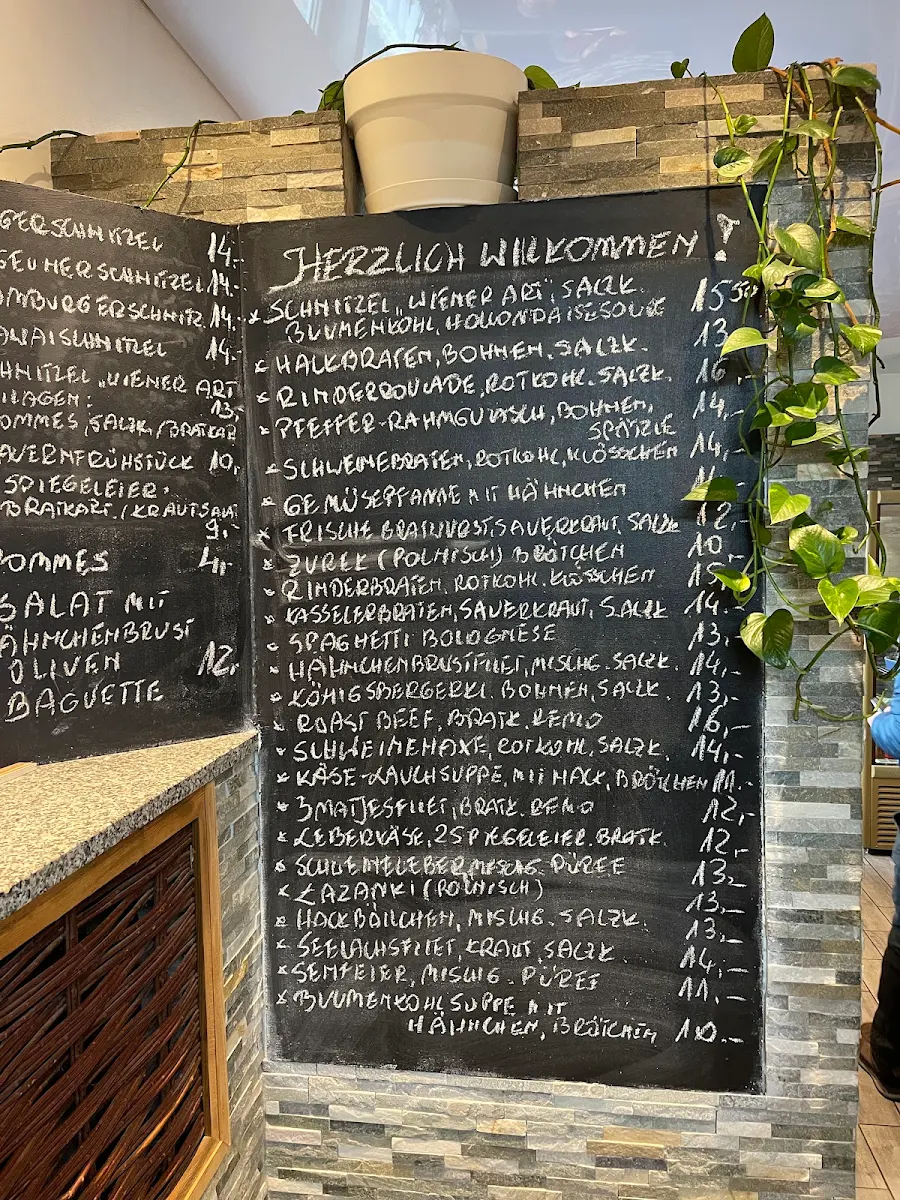 GERSCHNITZEL 14.-
GEUNERSCHNITZEL 14.-
AMBURGERSCHNITZ. 14.-
AWAISCHNITZEL 14.-
HNITZEL „WIENER ART
ILAGEN: 13,-
OMMES, SALZK./BRATKAR
AUERNFRÜHSTÜCK 10,-
SPIEGELEIER,
BRATKART./KRAUTSALAT
9,-
POMMES 4,-
SALAT MIT
ÄHNCHENBRUST
OLIVEN 12,-
BAGUETTE
HERZLICH WILLKOMMEN!
* SCHNITZEL „WIENER ART", SALZK. 15,50
BLUMENKOHL, HOLLONDAISESOUCE
* HALKBRATEN, BOHNEN, SALZK. 13
* RINDERROULADE, ROTKOHL, SALZK. 16,-
* PFEFFER-RAHMGULASCH, BOHNEN, 14,-
SPÄTZLE
* SCHWEINEBRATEN, ROTKOHL, KLÖSSCHEN 14,-
* GEMÜSEPFANNE MIT HÄHNCHEN
* FRISCHE BRATWURST, SAUERKRAUT, SALZK 12,-
* ZUREK (POLNISCH) BRÖTCHEN 10,-
* RINDERBRATEN, ROTKOHL, KLÖSSCHEN 15
* KASSELERBRATEN, SAUERKRAUT, SALZK 14.-
* SPAGHETTI BOLOGNESE 13,-
* HÄHNCHENBRUSTFILET, MISCHG. SALZK. 14,-
* KÖNIGSBERGERKL. BOHNEN, SALZK. 13,-
* ROAST BEEF, BRATK. REMO 16,-
* SCHWEINEHAXE, ROTKOHL, SALZK. 14,-
* KÄSE-LAUCHSUPPE, MIT HACK, BRÖTCHEN 11.-
* 3 MATJESFILET, BRATK. REMO 12,-
* LEBERKÄSE, 2 SPIEGELEIER. BRATK. 12,-
* SCHWEINELEBER, MISCHG. PÜREE 13,-
* ŁAZANKI (POLNISCH) 13.-
* HACKBÄLLCHEN, MISCHG. SALZK. 13,-
* SEELACHSFILET, KRAUT, SALZK 14,-
* SENFEIER, MISCHG. PÜREE 11,-
* BLUMENKOHLSUPPE MIT
HÄHNCHEN, BRÖTCHEN 10.-